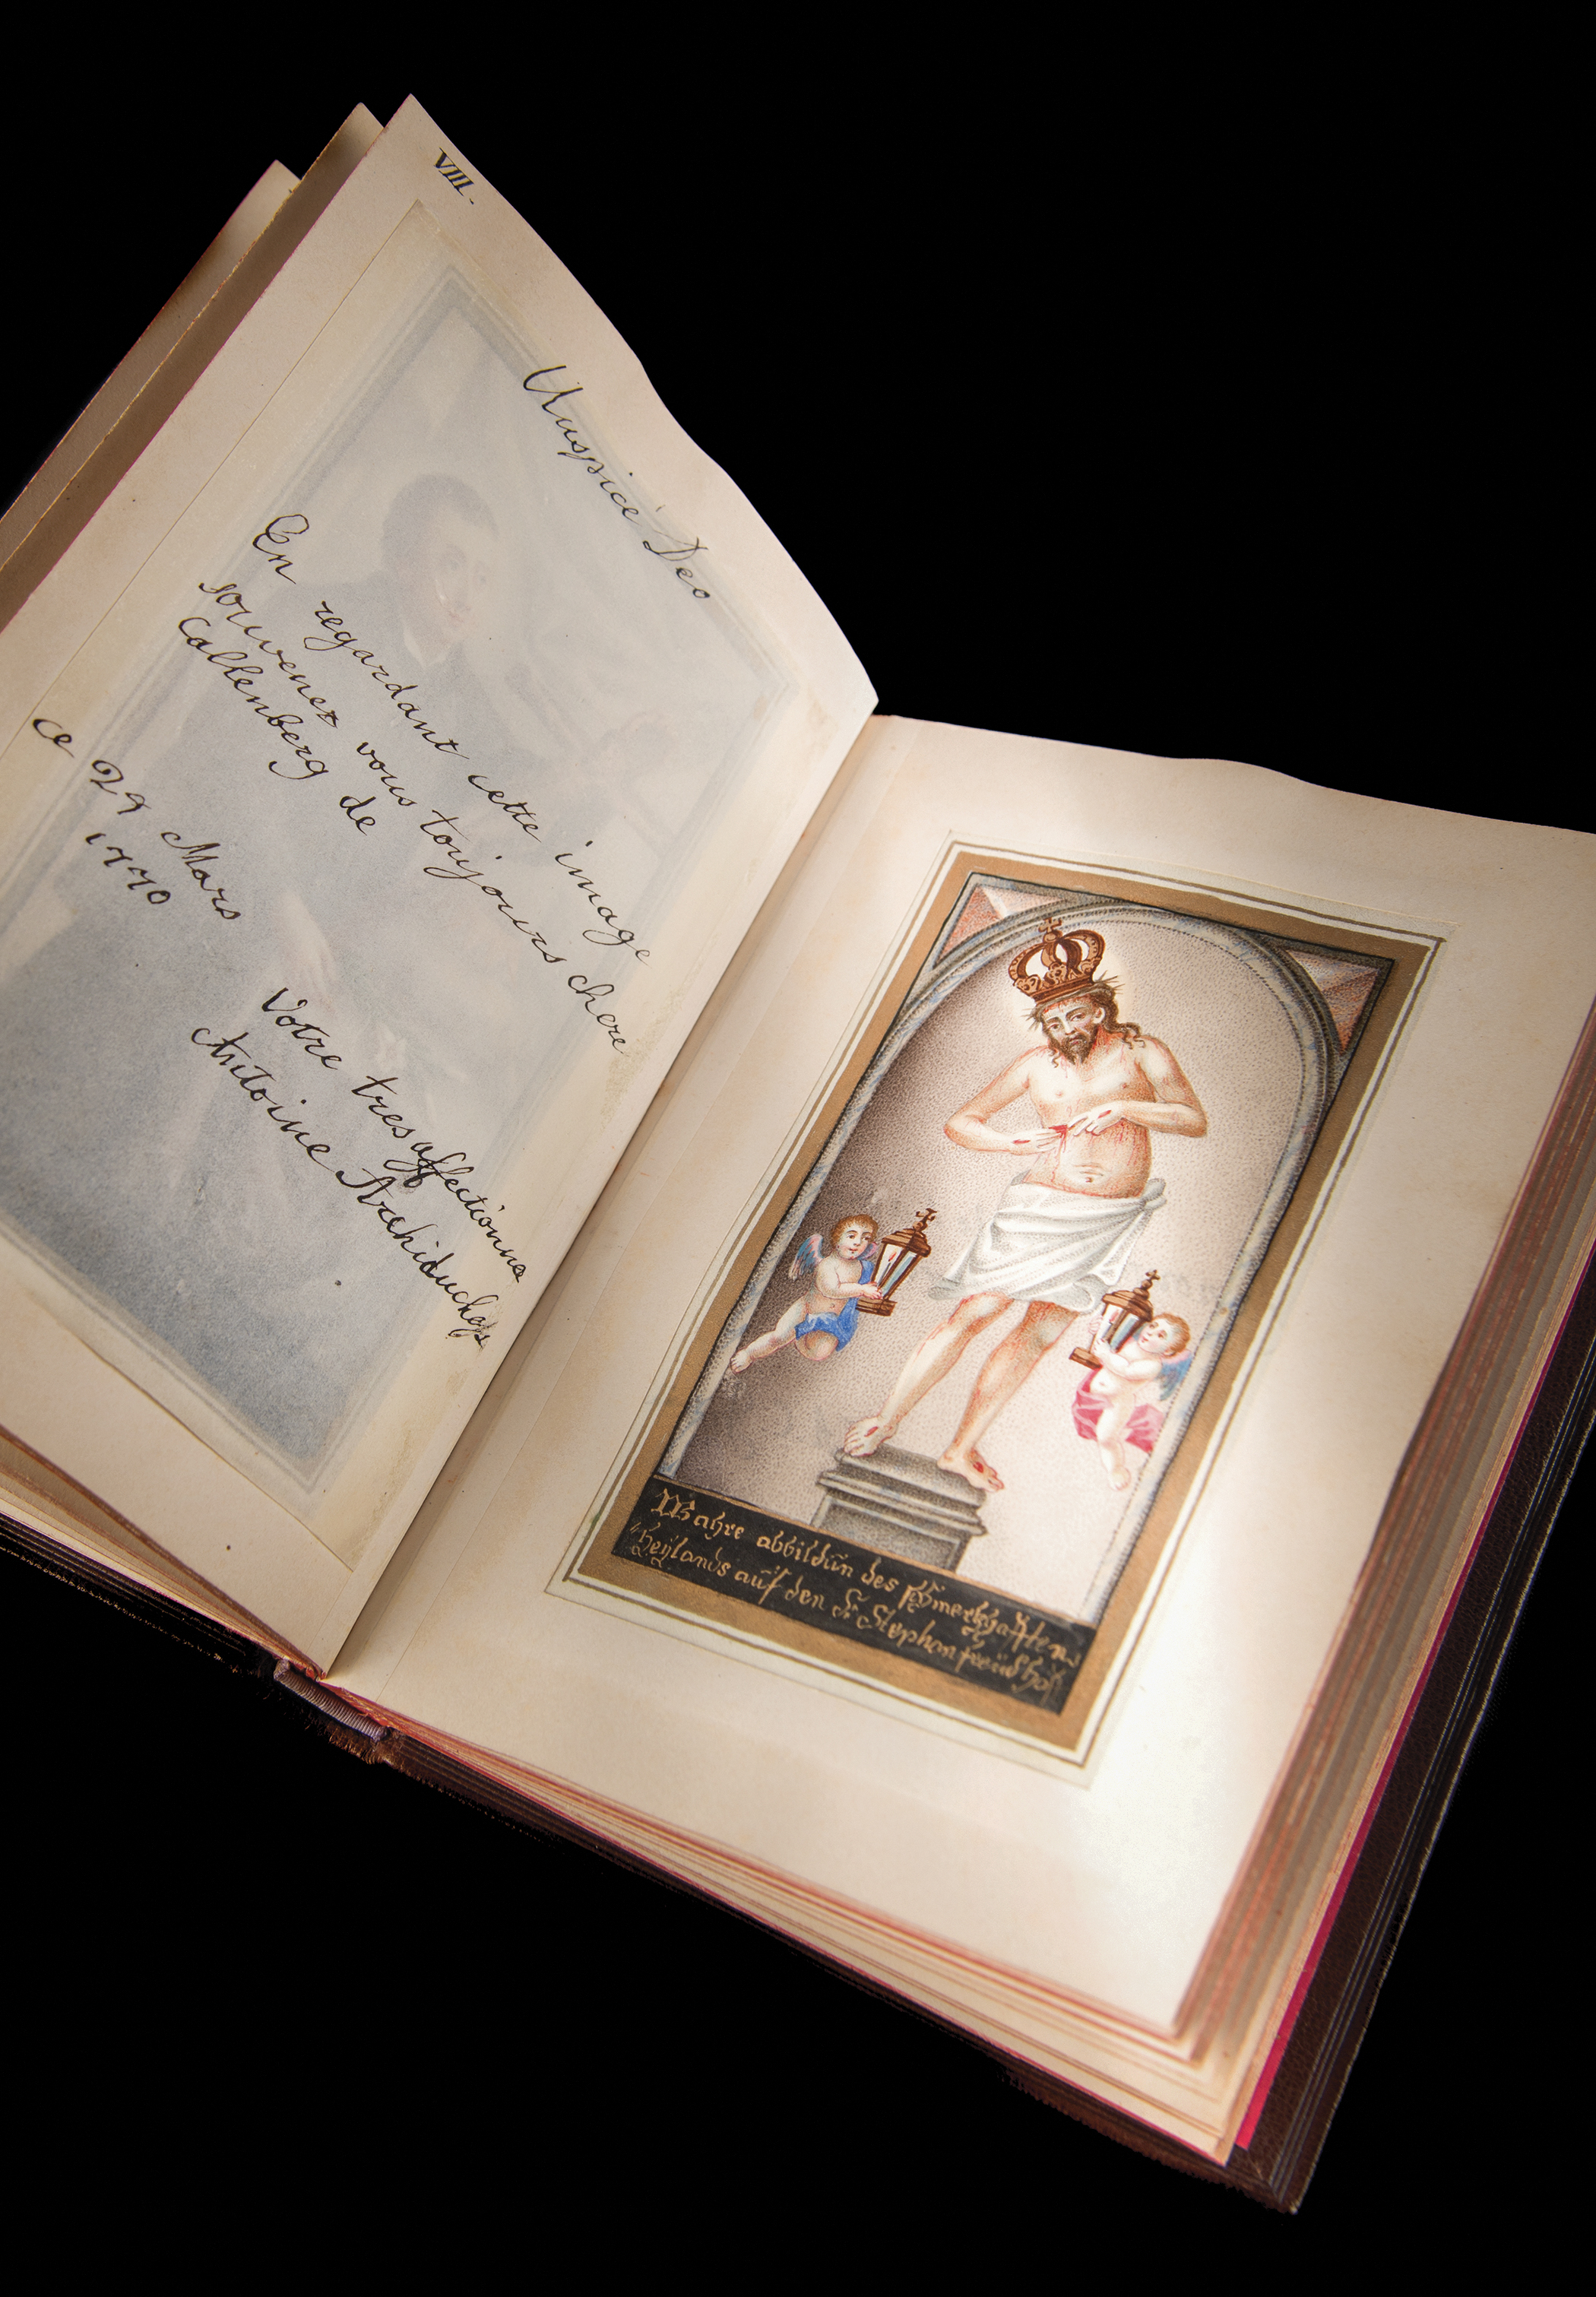 VIII.
Auspice Deo
En regardant cette image
souvenez vous toujours chere
Callenberg de
ce 29 Mars
1770
Votre tres affectionne
Antoine Archiduchesse
Wahre abbildūn des schmerzhafften
Heylands auf den St: Stephan freūdhof